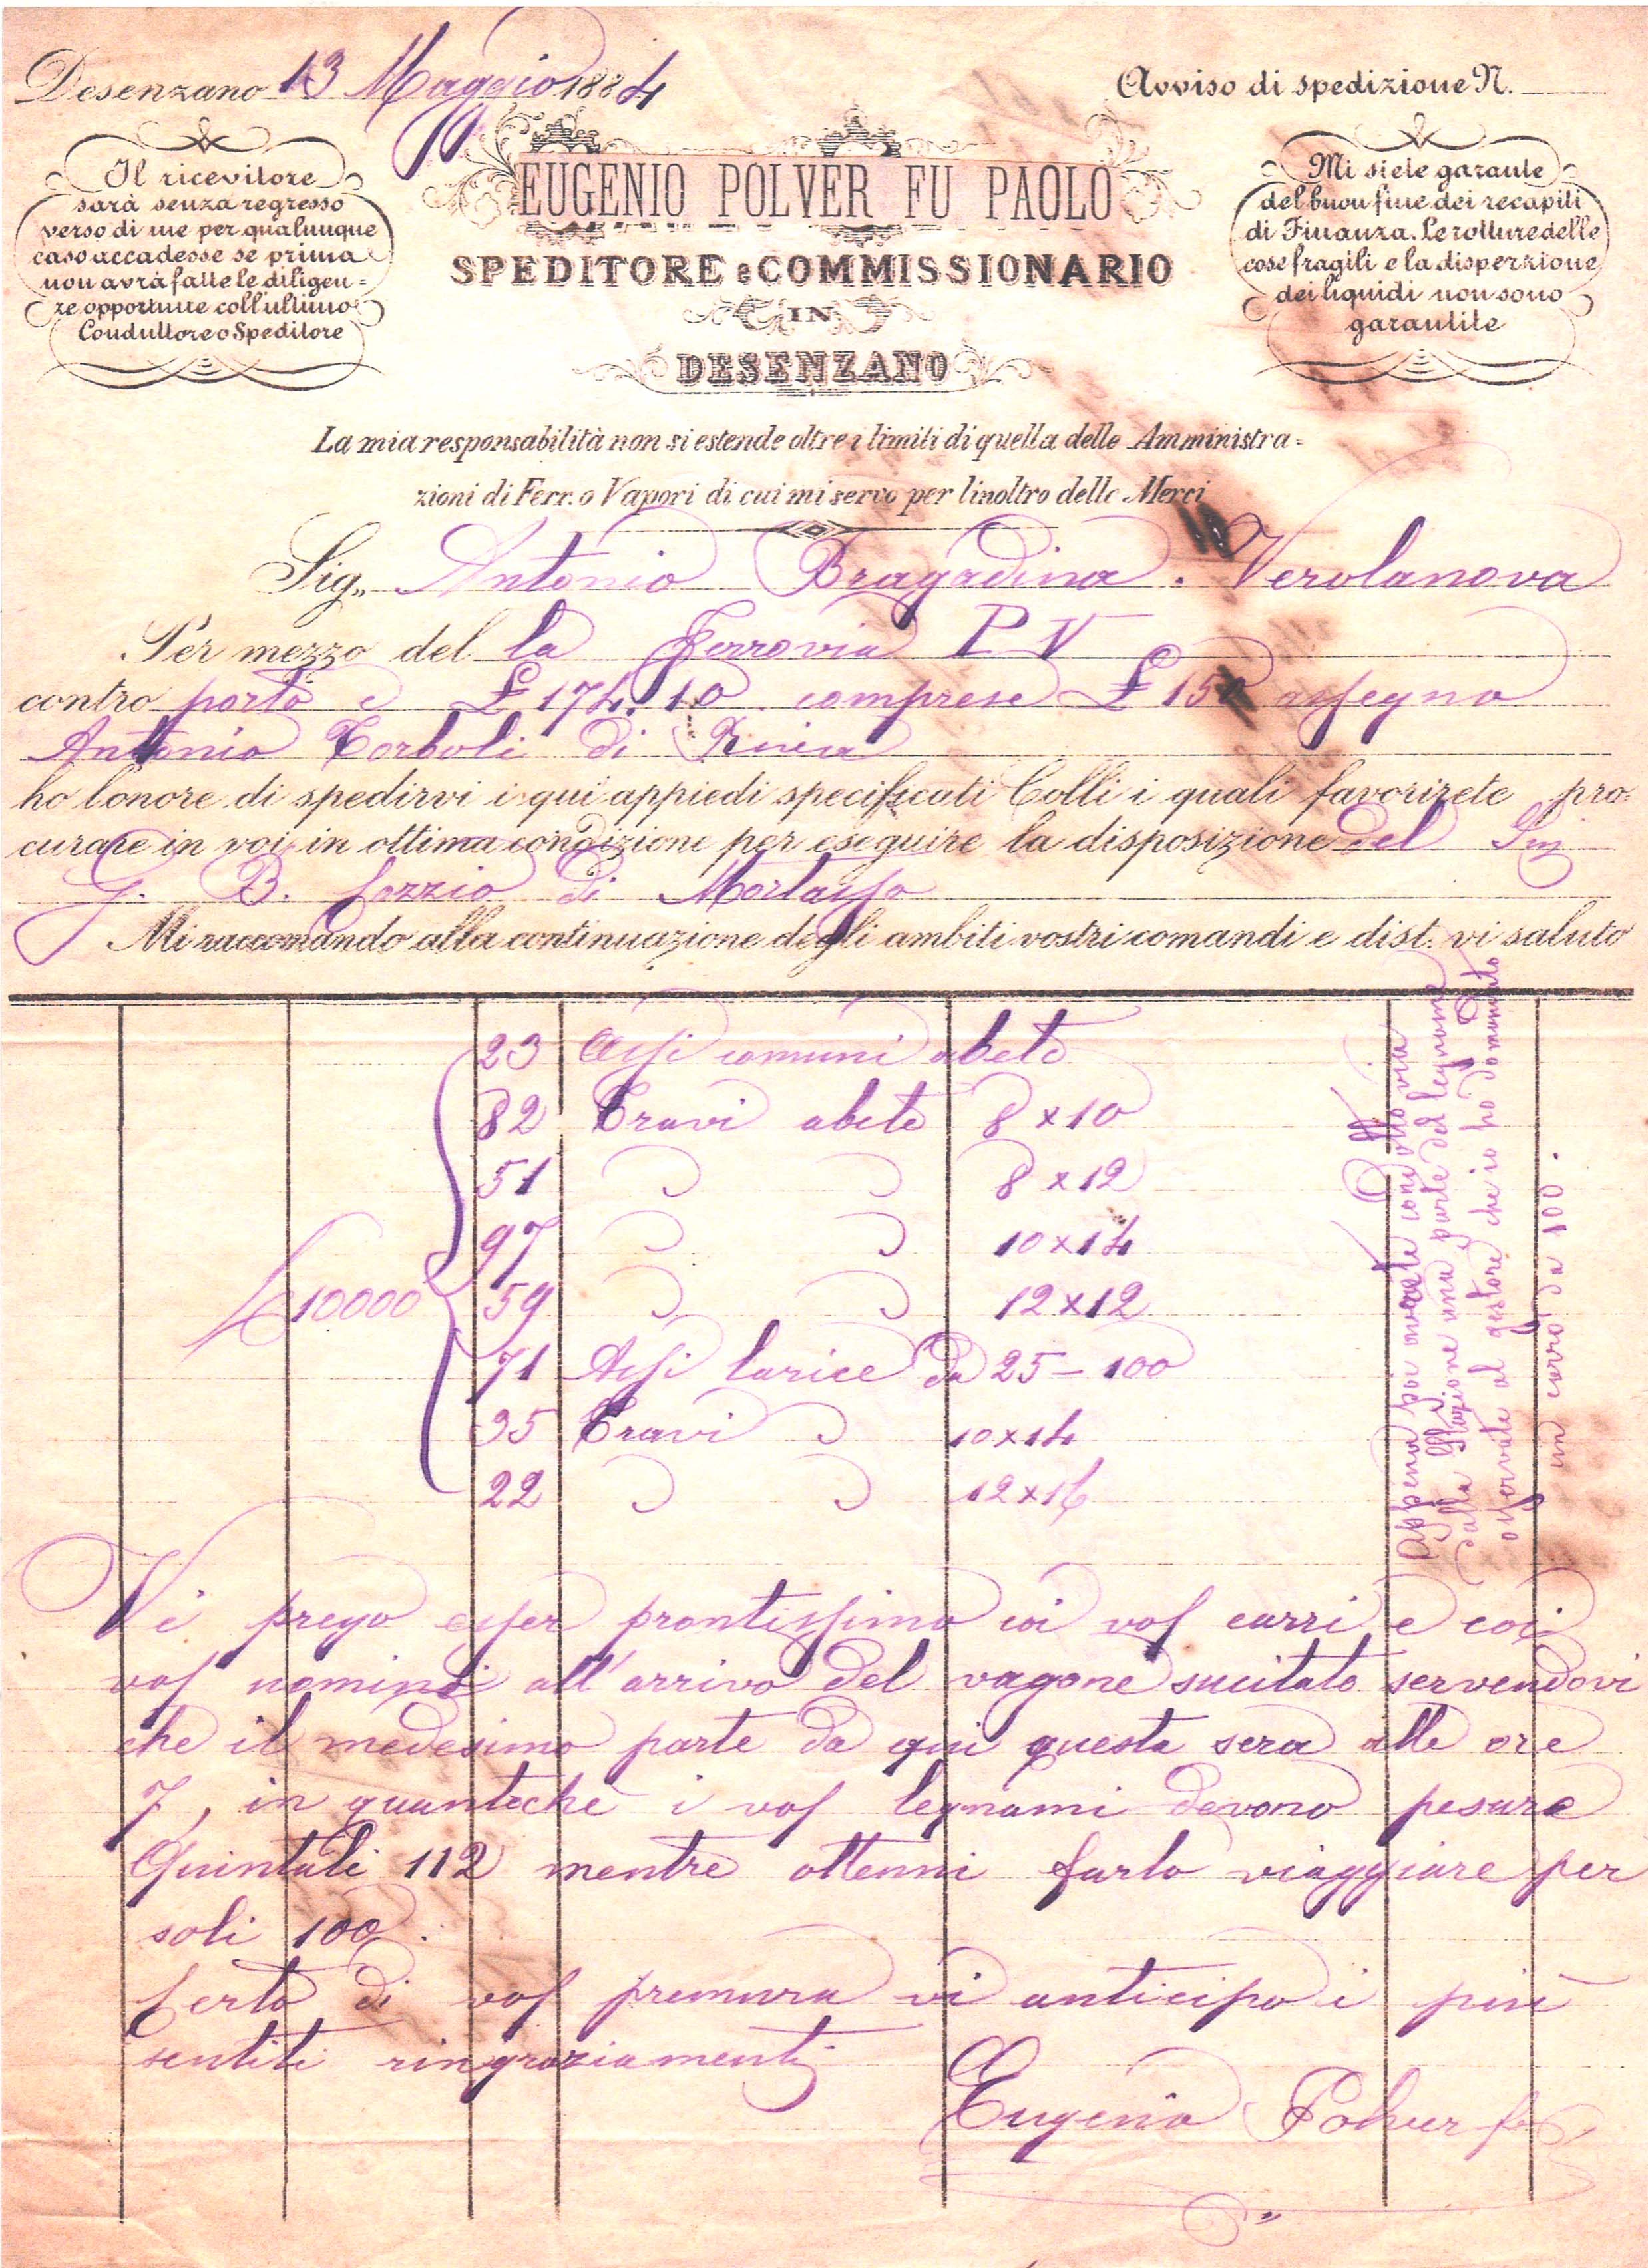 Desenzano 13 Maggio 1884
Avviso di spedizione N.
Il ricevitore
sarà senza regresso
verso di me per qualunque
caso accadesse se prima
non avrà fatte le diligen=
ze opportune coll'ultimo
Conduttore o Speditore
EUGENIO POLVER FU PAOLO
SPEDITORE e COMMISSIONARIO
IN
DESENZANO
Mi siete garante
del buon fine dei recapiti
di Finanza. Le rotture delle
cose fragili e la disperzione
dei liquidi non sono
garantite
La mia responsabilità non si estende oltre i limiti di quella delle Amministra=
zioni di Ferr. o Vapori di cui mi servo per l'inoltro delle Merci
Sig.. Antonio Bragadina. Verolanova
Per mezzo del la Ferrovia P V
contro porto e £ 174.10 comprese £ 150 assegno
Antonio Torboli di Riva
ho l'onore di spedirvi i qui appiedi specificati Colli i quali favorirete pro=
curare in voi in ottima condizione per eseguire la disposizione del
G. B. Cozzio di Mortasso
Mi raccomando alla continuazione degli ambiti vostri comandi e dist. vi saluto
23 Assi comuni abete
82 Travi abete 8 x 10
51 " " 8 x 12
97 " " 10 x 14
10000 59 " " 12 x 12
71 Assi larice da 25 - 100
35 Travi " 10 x 14
22 " " 12 x 16
Appena poi avrete condotto via
dalla Stazione una parte del legname
osservate al gestore che io ho domandato
un carro da 100.
Vi prego esser prontissimo coi vos carri e coi
vos uomini all'arrivo del vagone sucitato servendovi
che il medesimo parte da qui questa sera alle ore
7, in quantoche i vos legnami devono pesare
Quintali 112 mentre ottenni farlo viaggiare per
soli 100.
Certo di vos premura vi anticipo i più
sentiti ringraziamenti
Eugenio Polver